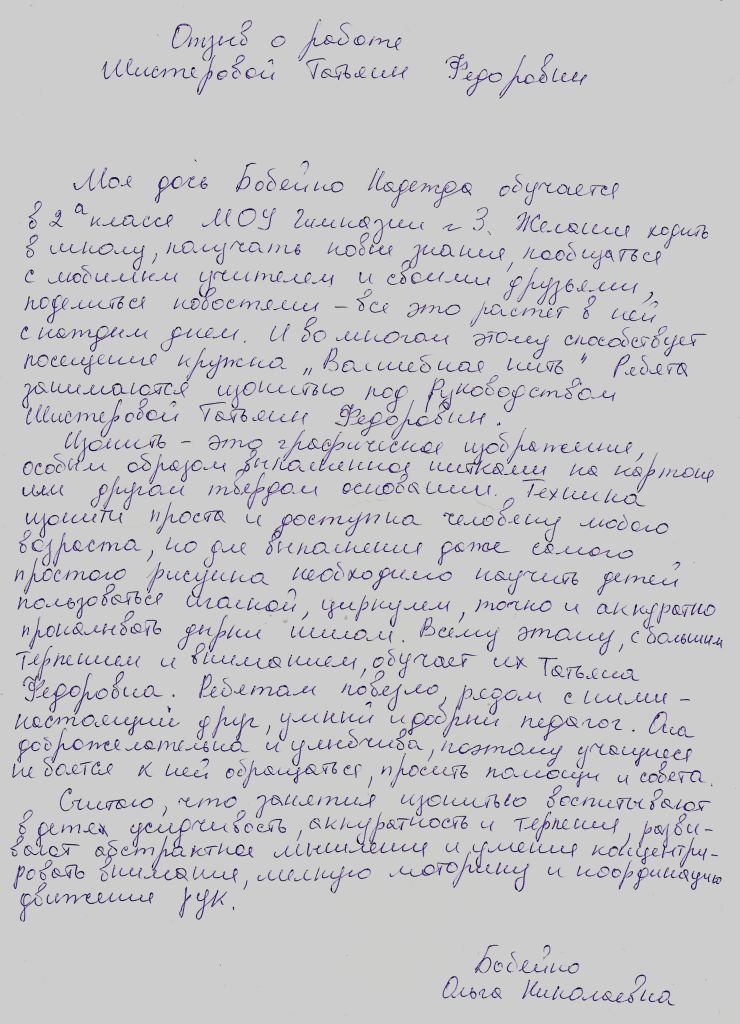 Отзыв о работе
Шистеровой Татьяны Федоровны
Моя дочь Бобейко Надежда обучается
в 2а классе МОУ Гимназии № 3. Желание ходить
в школу, получать новые знания, пообщаться
с любимым учителем и своими друзьями,
поделиться новостями – все это растет в ней
с каждым днем. И во многом этому способствует
посещение кружка „Волшебная нить" Ребята
занимаются изонитью под руководством
Шистеровой Татьяны Федоровны.
Изонить – это графическое изображение,
особым образом выполненное нитками на картоне
или другом твердом основании. Техника
изонити проста и доступна человеку любого
возраста, но для выполнения даже самого
простого рисунка необходимо научить детей
пользоваться иголкой, циркулем, точно и аккуратно
прокалывать дырки шилом. Всему этому, с большим
терпением и вниманием, обучает их Татьяна
Федоровна. Ребятам повезло, рядом с ними –
настоящий друг, умный и добрый педагог. Она
доброжелательна и улыбчива, поэтому учащиеся
не боятся к ней обращаться, просить помощи и совета.
Считаю, что занятия изонитью воспитывают
в детях усидчивость, аккуратность и терпение, разви-
вают абстрактное мышление и умение концентри-
ровать внимание, мелкую моторику и координацию
движения рук.
Бобейко
Ольга Николаевна